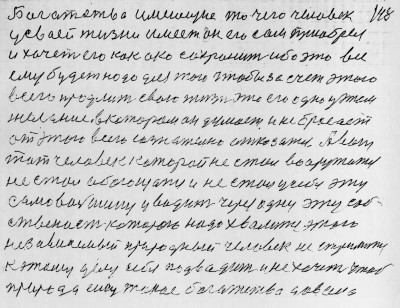 Богатства имеющие то чего человек 148
у своей жизни имеет он его сам приобрел
и хочет его как око сохранить ибо это все
ему будет надо для того чтобы за счет этого
всего продлить свою жизнь это его одно у этом
желание в котором он думает и не бросает
от этого всего сознательно отказаться А вот
тот человек который не стал вооружать
не стал обогащать и не стал у себя эту
самозащиту уводить через одну эту соб-
ственность которою надо хвалить этого
независимый природный человек не стремится
к этому делу себя подводить и не хочет чтоб
природа ему такое богатство давала